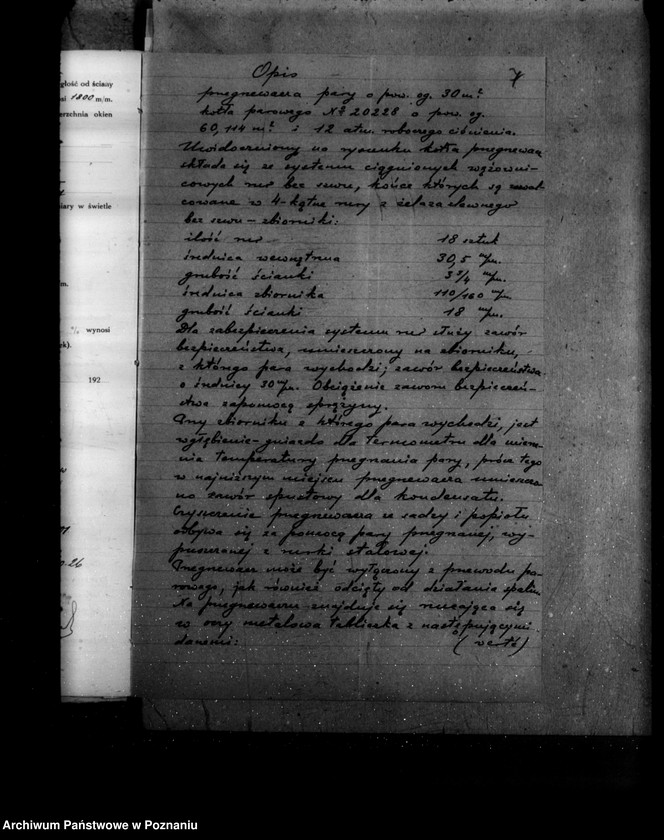 głość od ściany
si 1800 m/m.
erzchnia okien
iary w świetle
m.
% wynosi
ek).
192
26
Opis
7
przegrzewacza pary o pow. og. 30 m²
kotła parowego № 20228 o pow. og.
60,114 m² i 12 atm. roboczego ciśnienia.
Uwidoczniony na rysunku kotła przegrzewacz
składa się ze systemu ciągnionych wężowni-
cowych rur bez szwu, końce których są zawal
cowane w 4-kątne rury z żelaza zlewnego
bez szwu – zbiorniki:
ilość rur 18 sztuk
średnica wewnętrzna 30,5 m/m.
grubość ścianki 3 3/4 m/m.
średnica zbiornika 110/160 m/m
grubość ścianki 18 m/m.
Dla zabezpieczenia systemu rur służy zawór
bezpieczeństwa, umieszczony na zbiorniku,
z którego para wychodzi; zawór bezpieczeństwa
o średnicy 30 m/m. Obciążenie zaworu bezpieczeń-
stwa zapomocą sprężyny.
Przy zbiorniku z którego para wychodzi, jest
wgłębienie-gniazdo dla termometru dla mierze
nia temperatury przegrzania pary, prócz tego
w najniższym miejscu przegrzewacza umieszczo
no zawór spustowy dla kondensatu.
Czyszczenie przegrzewacza ze sadzy i popiołu
odbywa się za pomocą pary przegrzanej, wy-
puszczanej z rurki stalowej.
Przegrzewacz może być wyłączony z przewodu pa-
rowego, jak również odcięty od działania spalin.
Na przegrzewaczu znajduje się rzucająca się
w oczy metalowa tabliczka z następującymi
danemi: (verte)
Archiwum Państwowe w Poznaniu